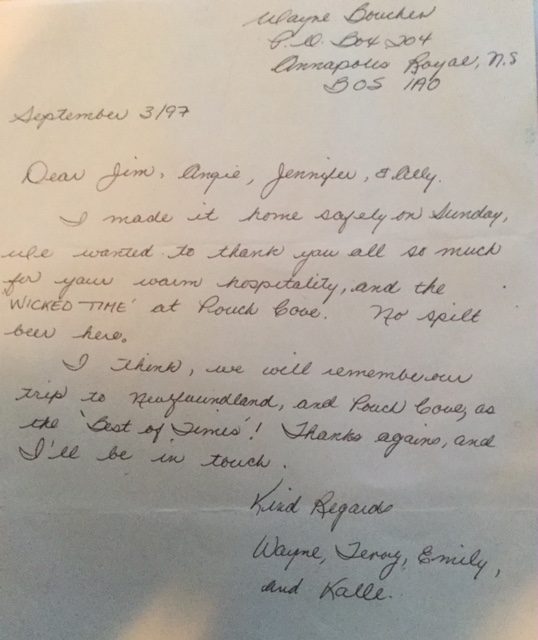 Wayne Boucher
P.O. Box 204
Annapolis Royal, N.S
BOS 1A0
September 3/97
Dear Jim, Angie, Jennifer, & Ally.
I made it home safely on Sunday,
we wanted to thank you all so much
for your warm hospitality, and the
'WICKED TIME' at Pouch Cove. No spilt
beer here.
I think, we will remember our
trip to Newfoundland, and Pouch Cove, as
the 'Best of Times'! Thanks again, and
I'll be in touch.
Kind Regards
Wayne, Terry, Emily,
and Kalle.